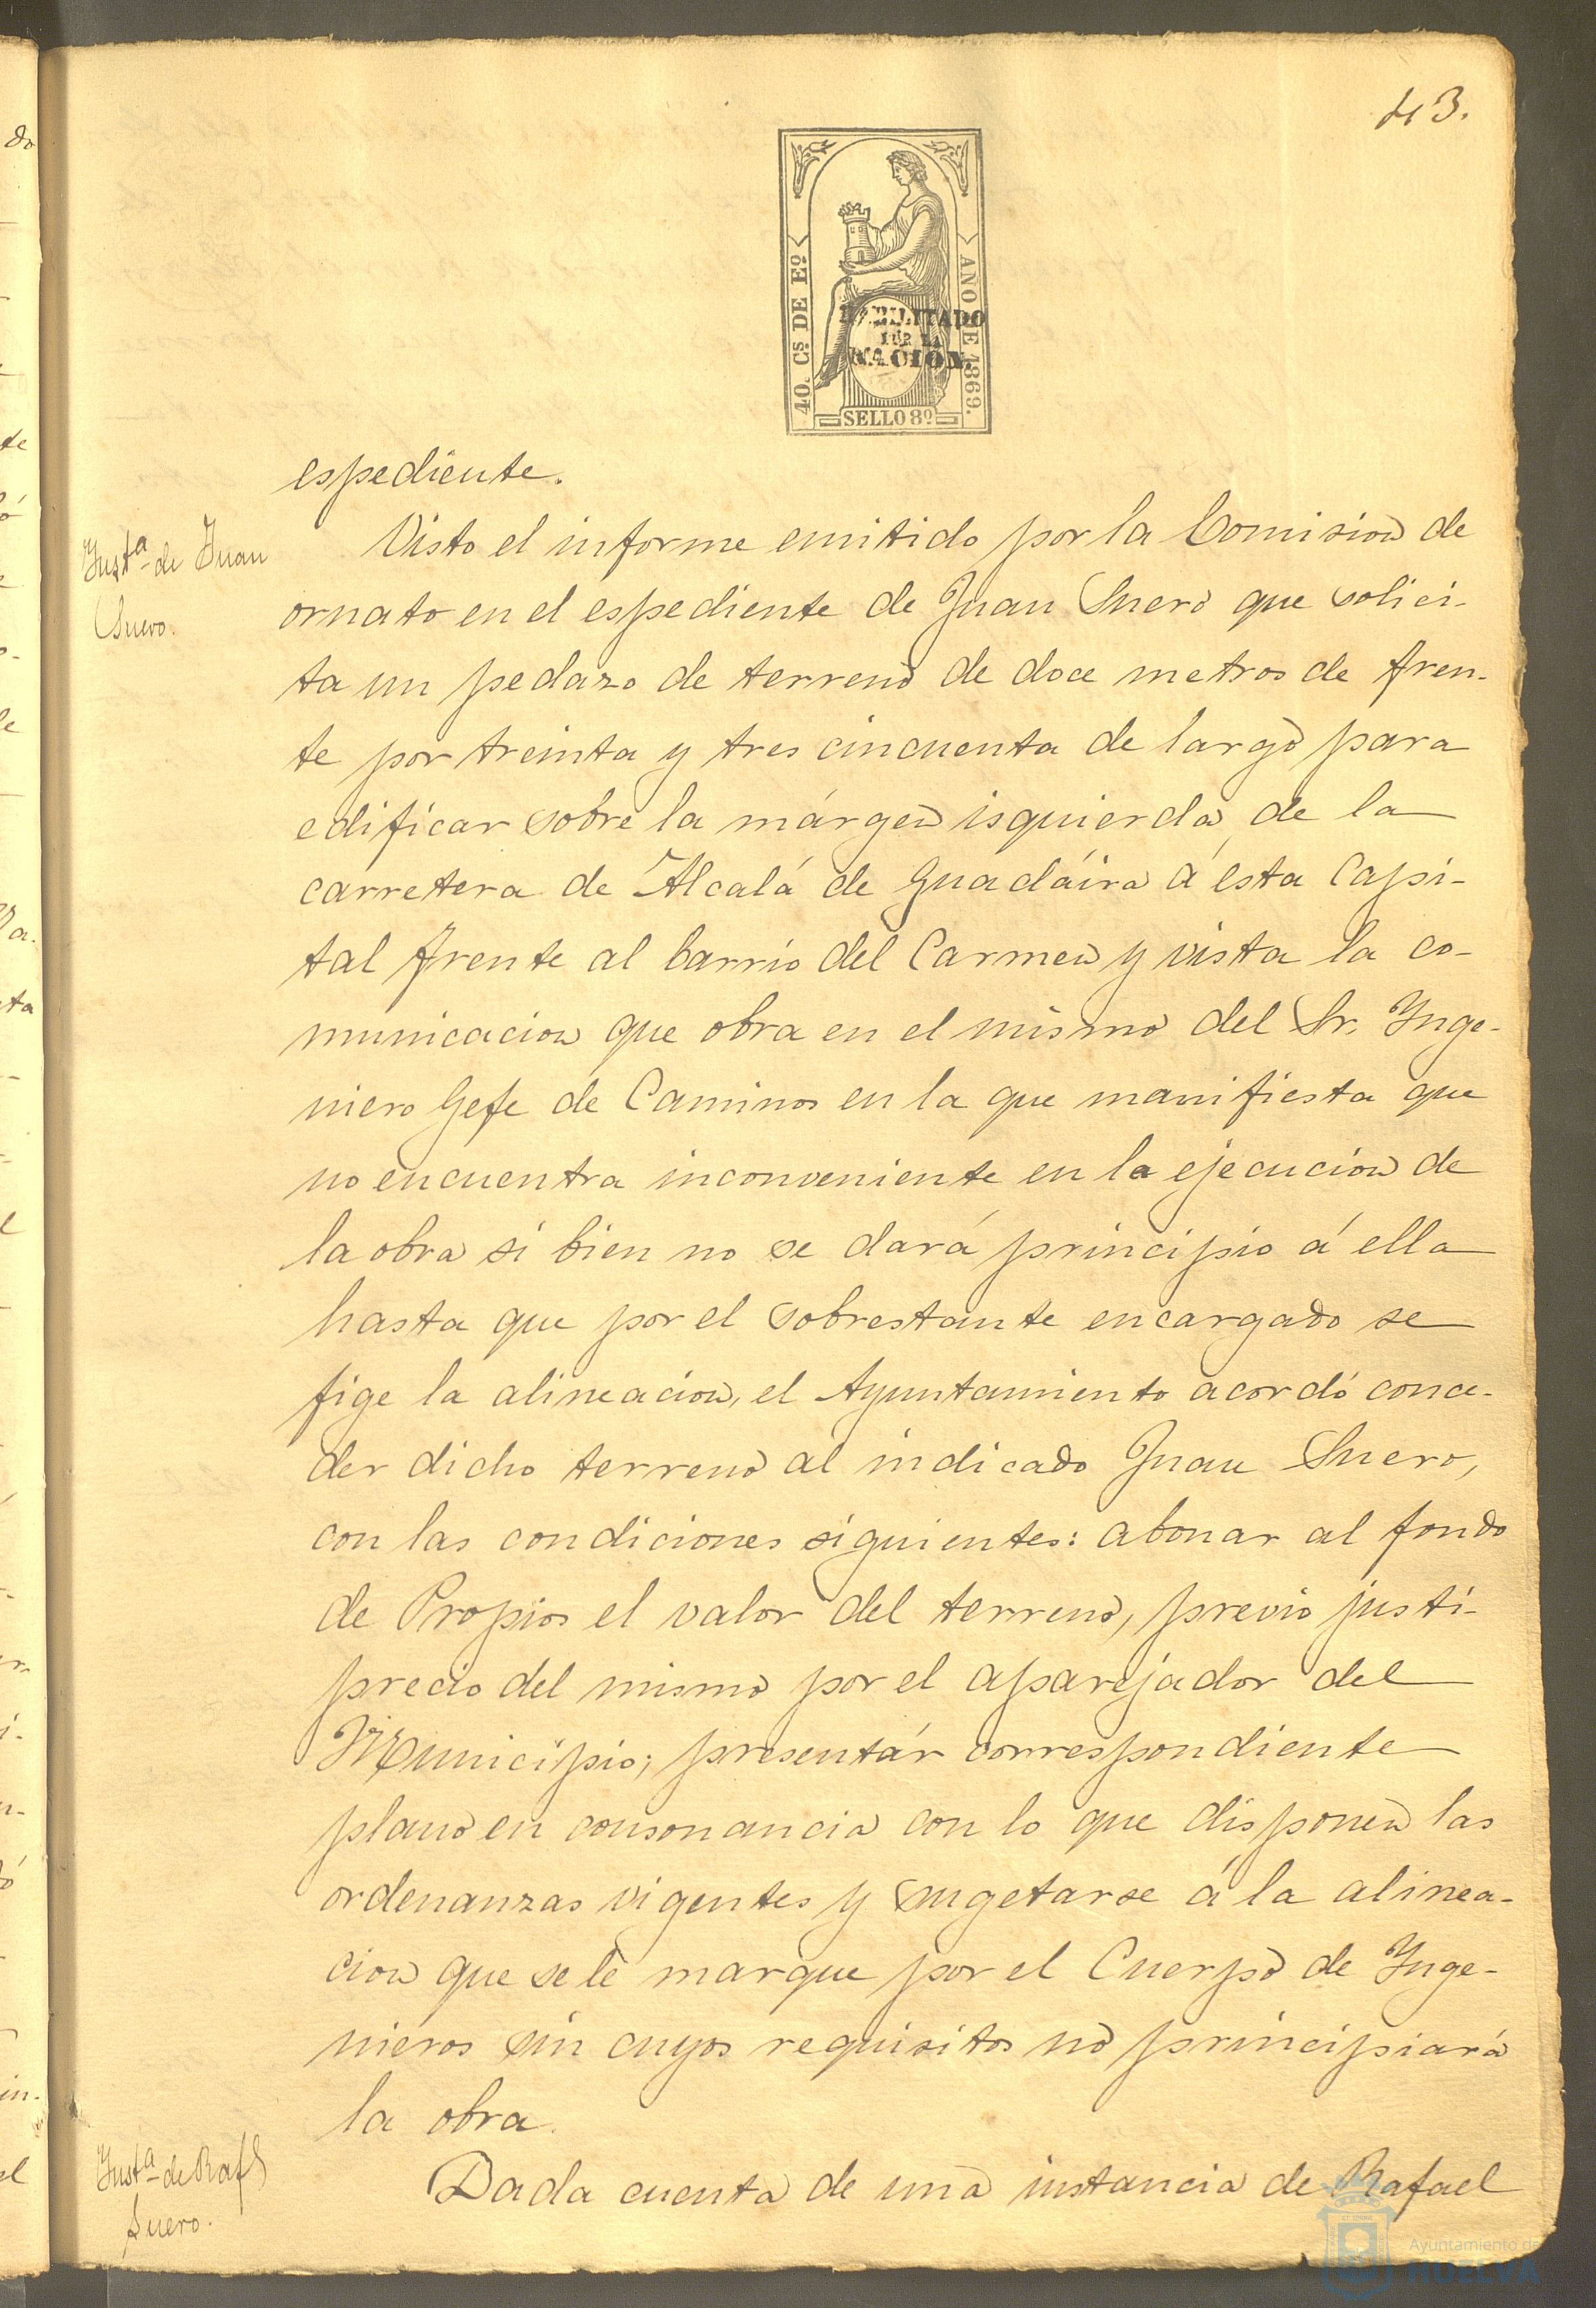 43.
40. Cs. DE Eo.
AÑO DE 1869.
HABILITADO
POR LA
NACION.
SELLO 8º
espediente.
Ynsta. de Juan
Suero.
Visto el informe emitido por la Comision de
ornato en el espediente de Juan Suero que solici-
ta un pedazo de terreno de doce metros de fren-
te por treinta y tres cincuenta de largo para
edificar sobre la márgen isquierda de la
carretera de Alcalá de Guadáira á esta Capi-
tal frente al barrio del Carmen y vista la co-
municacion que obra en el mismo del Sr. Ynge-
niero Gefe de Caminos en la que manifiesta que
no encuentra inconveniente en la ejecucion de
la obra si bien no se dará principio á ella
hasta que por el sobrestante encargado se
fige la alineacion, el Ayuntamiento acordó conce-
der dicho terreno al indicado Juan Suero,
con las condiciones siguientes: abonar al fondo
de Propios el valor del terreno, previo justi-
precio del mismo por el aparejador del
Municipio; presentár correspondiente
plano en consonancia con lo que disponen las
ordenanzas vigentes y sugetarse á la alinea-
cion que se le marque por el Cuerpo de Ynge-
nieros sin cuyos requisitos no principiará
la obra.
Ynsta. de Rafl
Suero.
Dada cuenta de una instancia de Rafael
Ayuntamiento de
HUELVA